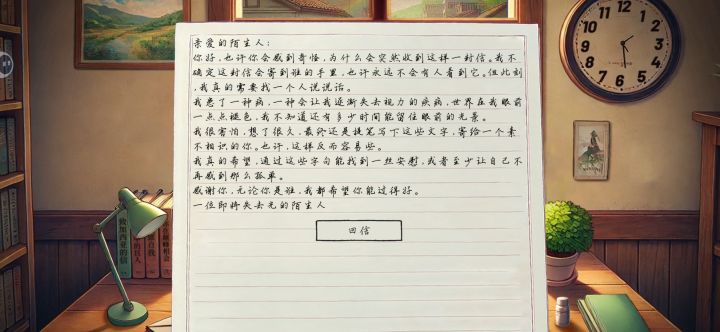 亲爱的陌生人：
你好，也许你会感到奇怪，为什么会突然收到这样一封信。我不
确定这封信会寄到谁的手里，也许永远不会有人看到它。但此刻
，我真的需要找一个人说说话。
我患了一种病，一种会让我逐渐失去视力的疾病，世界在我眼前
一点点褪色，我不知道还有多少时间能留住眼前的光景。
我很害怕，想了很久，最终还是提笔写下这些文字，寄给一个素
不相识的你。也许，这样反而容易些。
我真的希望，通过这些字句能找到一丝安慰，或者至少让自己不
再感到那么孤单。
感谢你，无论你是谁，我都希望你能过得好。
一位即将失去光的陌生人
回信
12
1
2
3
4
5
6
7
8
9
10
11